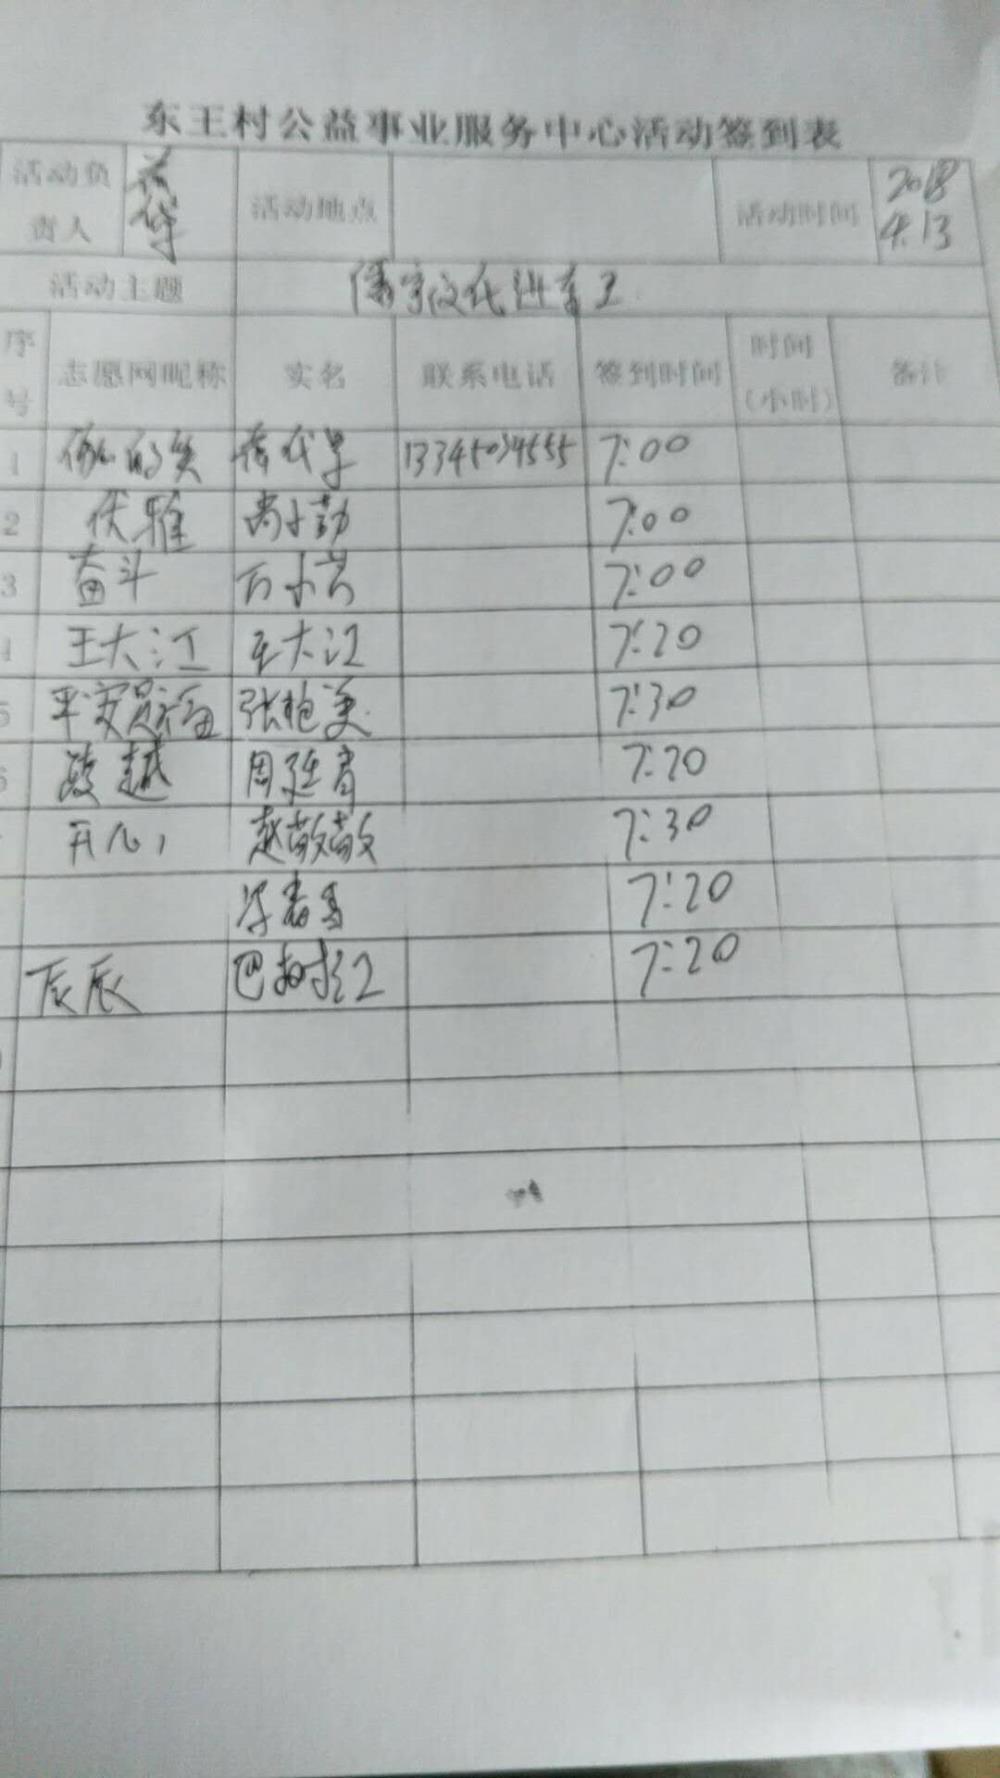 东王村公益事业服务中心活动签到表
活动负责人 活动地点 活动时间 2018 4.13
活动主题 儒学文化进东王
序号 志愿网昵称 实名 联系电话 签到时间 时间(小时) 备注
1 7:00
2 优雅 7:00
3 奋斗 7:00
4 王大江 王大江 7:20
5 平安是福 张艳美 7:30
6 跨越 周延青 7:20
开心 赵敬敬 7:30
7:20
辰辰 巴树红 7:20